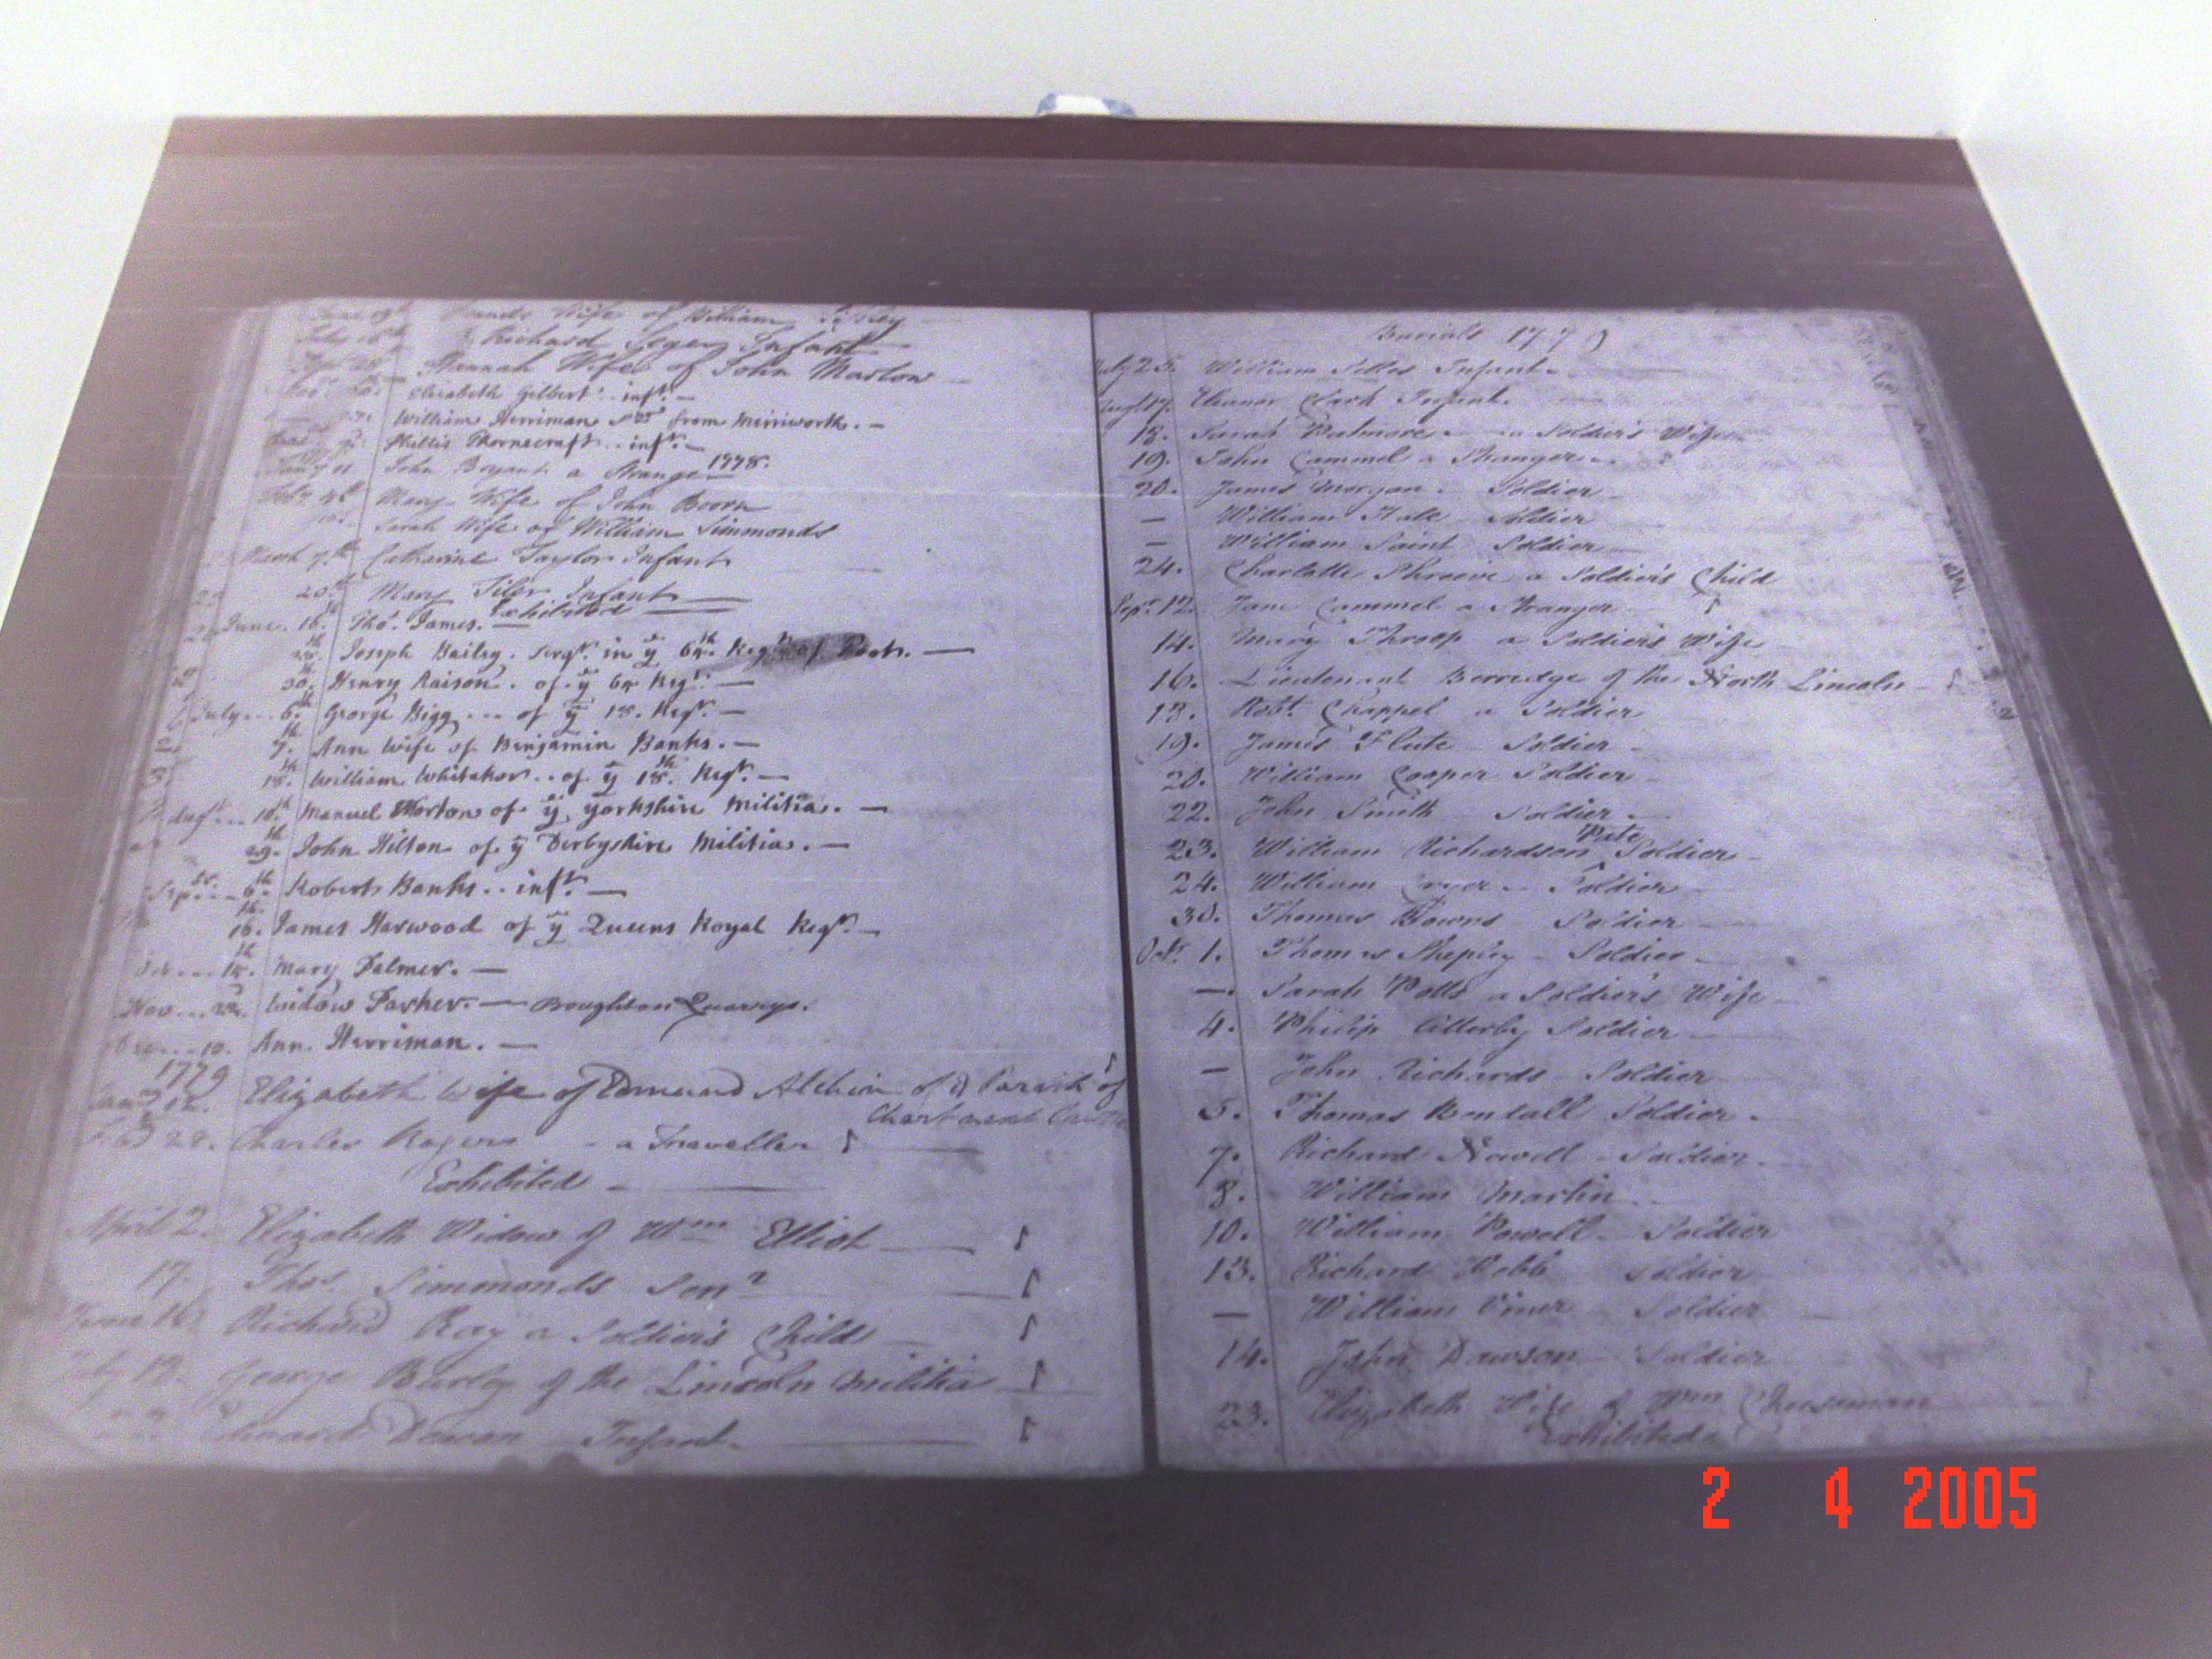 Wife of William
Richard Infant
Hannah Wife of John Marlow
Elizabeth Gilbert .. inft. —
William Herriman from Merriworth. —
Phillis Thornecraft .. inft. —
11 John Bryant a Strange 1778.
Mary Wife of John Boorn
Sarah Wife of William Simmonds
March 7th Catharine Taylor Infant
20th Mary Tiler Infant
Exhibited
June 16th Tho. James. —
Joseph Bailey. Sergt. in ye 6th. Regt. of Foot. —
30th Henry Raison. of ye 6th Regt. —
July 6th George Bigg ... of ye 18. Regt. —
7th Ann Wife of Benjamin Banks. —
18th William Whitaker .. of ye 18th. Regt. —
Augt 10th Manuel Worton of ye Yorkshire Militia. —
29th John Hilton of ye Derbyshire Militia. —
Sep 6th Robert Banks .. inft. —
16th James Harwood of ye Queens Royal Regt. —
18th Mary Palmer. —
Nov 22 Widow Parker. — Boughton Quarrys.
10. Ann Herriman. —
1779
12. Elizabeth Wife of Edmund Alchin of ye Parish of
Chart next
28. Charles Rogers - a Traveller
Exhibited
April 2. Elizabeth Widow of Wm Elliot
17. Thos. Simmonds Senr
June 16 Richard Ray a Soldier's Child
July 19. George Burley of the Lincoln Militia
Edward Infant
Burials 1779
July 25. William Infant
Augt 17. Eleanor Clark Infant
18. Sarah a Soldier's Wife
19. John Cammel a Stranger
20. James Morgan Soldier
— William Hale Soldier
— William Saint Soldier
24. Charlotte Shreeve a Soldier's Child
Sepr. 12. Jane Cammel a Stranger
14. Mary Throop a Soldier's Wife
16. Lieutenant Berridge of the North Lincoln
Robt. Chappel a Soldier
19. James Flute Soldier
20. William Cooper Soldier
22. John Smith Soldier
23. William Richardson Soldier
24. William Cryer Soldier
30. Thomas Downs Soldier
Octr. 1. Thomas Shepley Soldier
—. Sarah Potts a Soldier's Wife
4. Philip Soldier
— John Richards Soldier
5. Thomas Bentall Soldier
7. Richard Nowell Soldier
8. William Martin
10. William Powell Soldier
13. Richard Webb Soldier
— William Viner Soldier
14. John Dawson Soldier
23. Elizabeth Wife of Wm Cheesman
Exhibited
2 4 2005